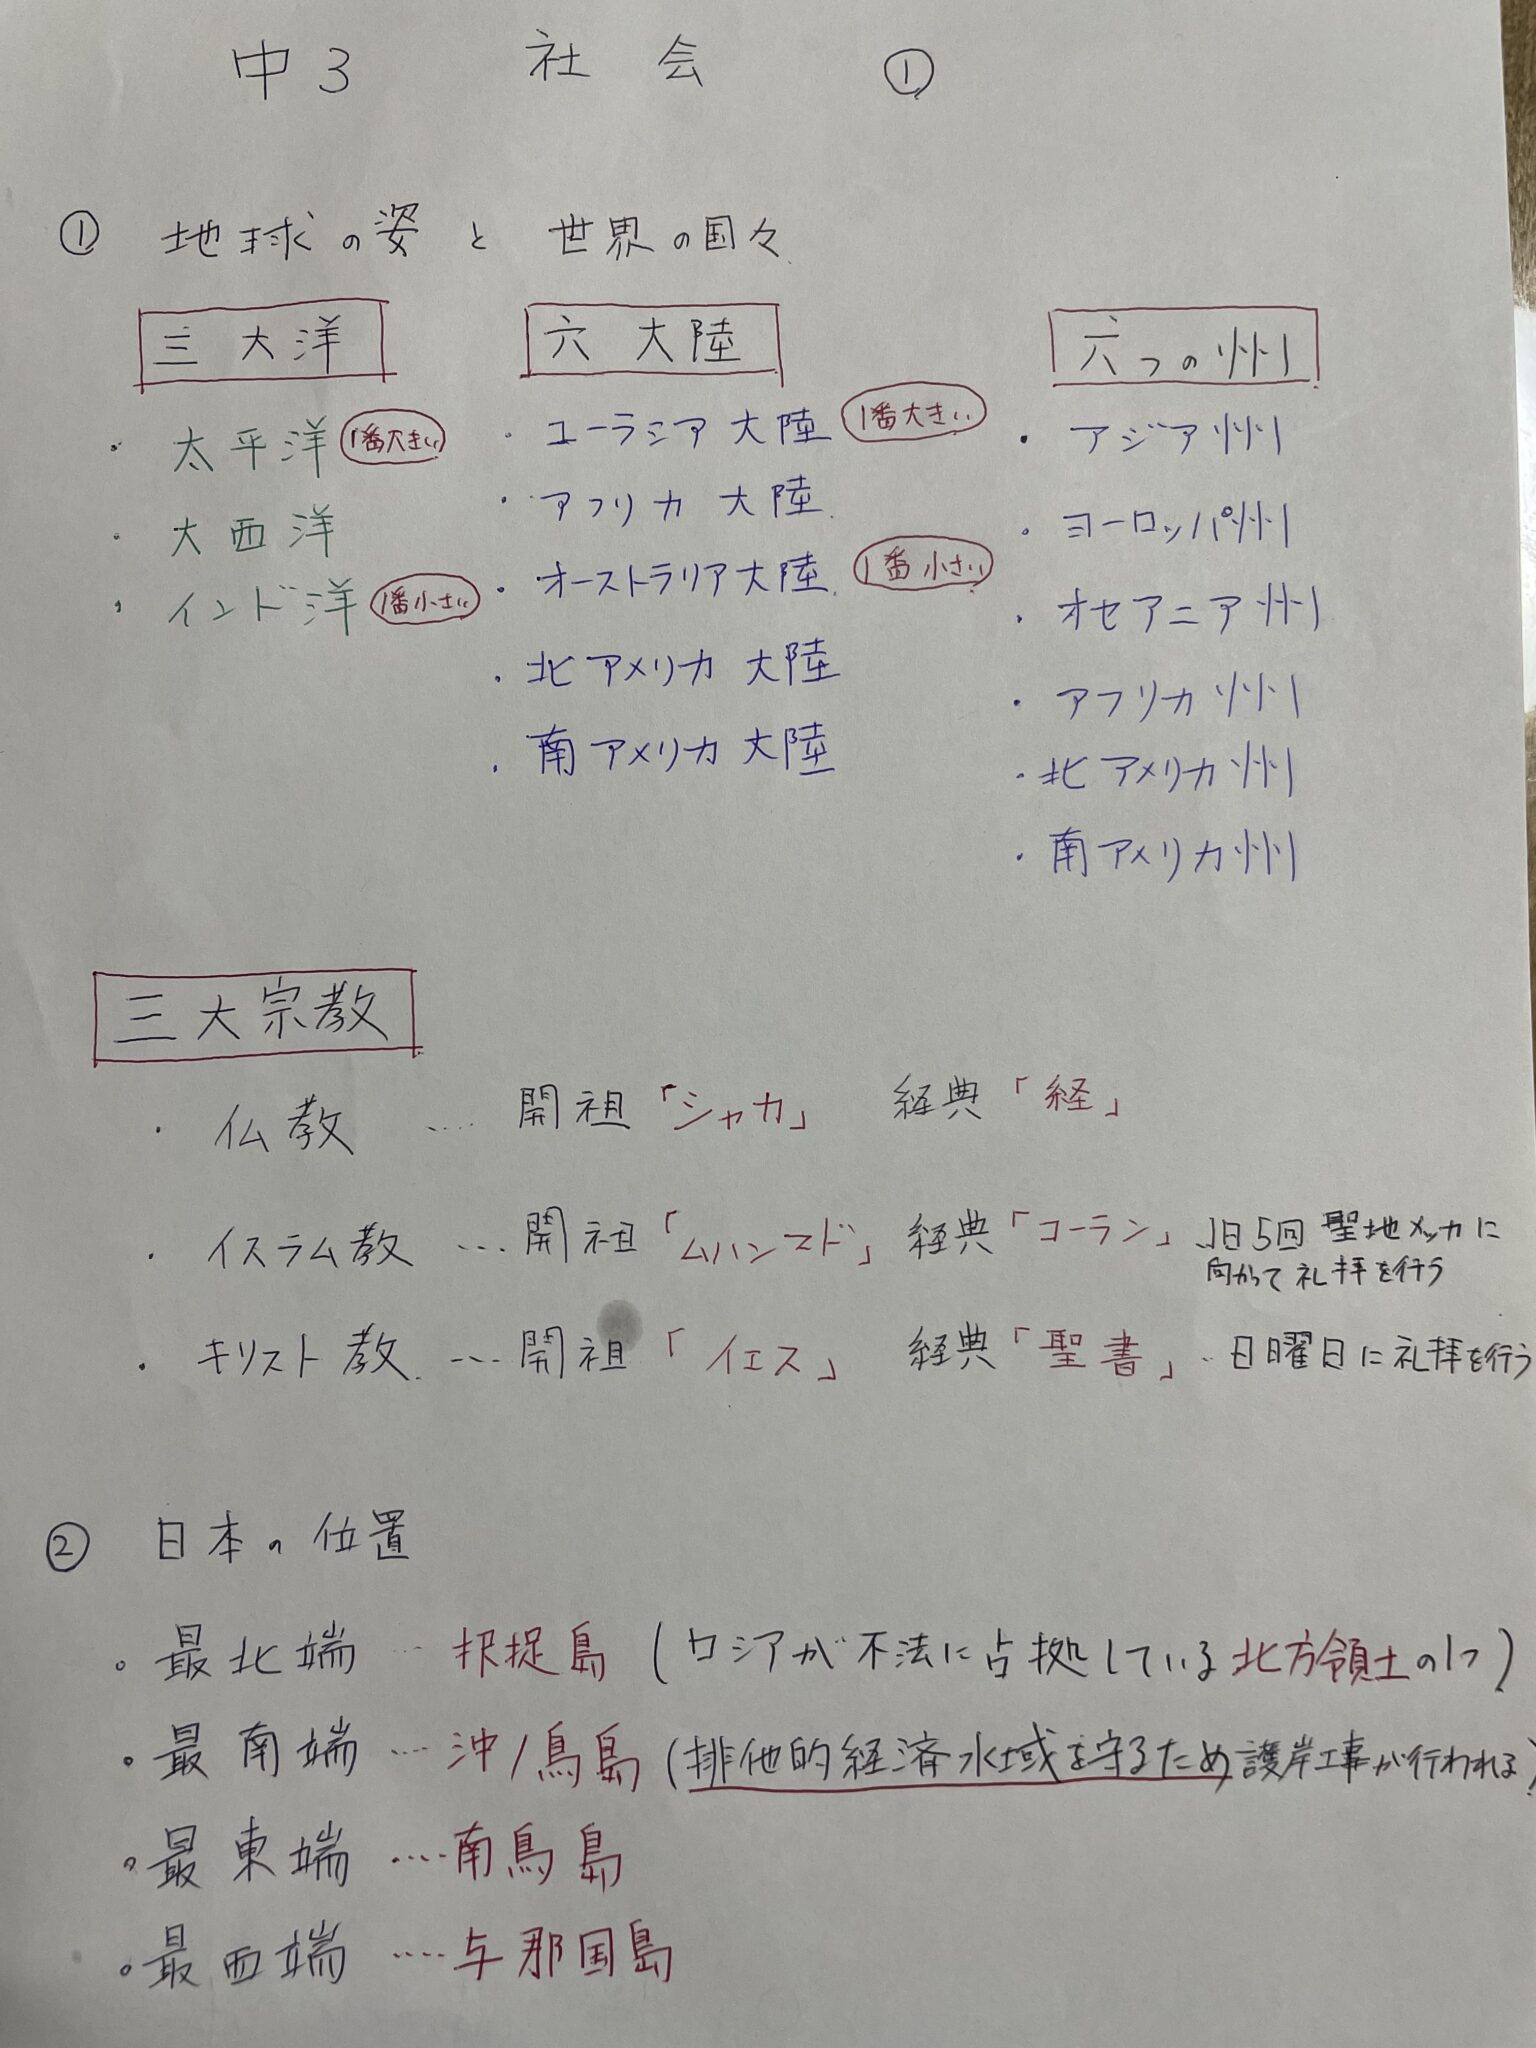 中3 社会 ①
① 地球の姿と世界の国々
三大洋
・太平洋 1番大きい
・大西洋
・インド洋 1番小さい
六大陸
・ユーラシア大陸 1番大きい
・アフリカ大陸
・オーストラリア大陸 1番小さい
・北アメリカ大陸
・南アメリカ大陸
六つの州
・アジア州
・ヨーロッパ州
・オセアニア州
・アフリカ州
・北アメリカ州
・南アメリカ州
三大宗教
・仏教 …. 開祖「シャカ」 経典「経」
・イスラム教 … 開祖「ムハンマド」 経典「コーラン」、1日5回 聖地メッカに
向かって礼拝を行う
・キリスト教 … 開祖「イエス」 経典「聖書」.. 日曜日に礼拝を行う
② 日本の位置
。最北端 … 択捉島 (ロシアが不法に占拠している北方領土の1つ)
。最南端 … 沖ノ鳥島 (排他的経済水域を守るため護岸工事が行われる)
。最東端 …. 南鳥島
。最西端 …. 与那国島